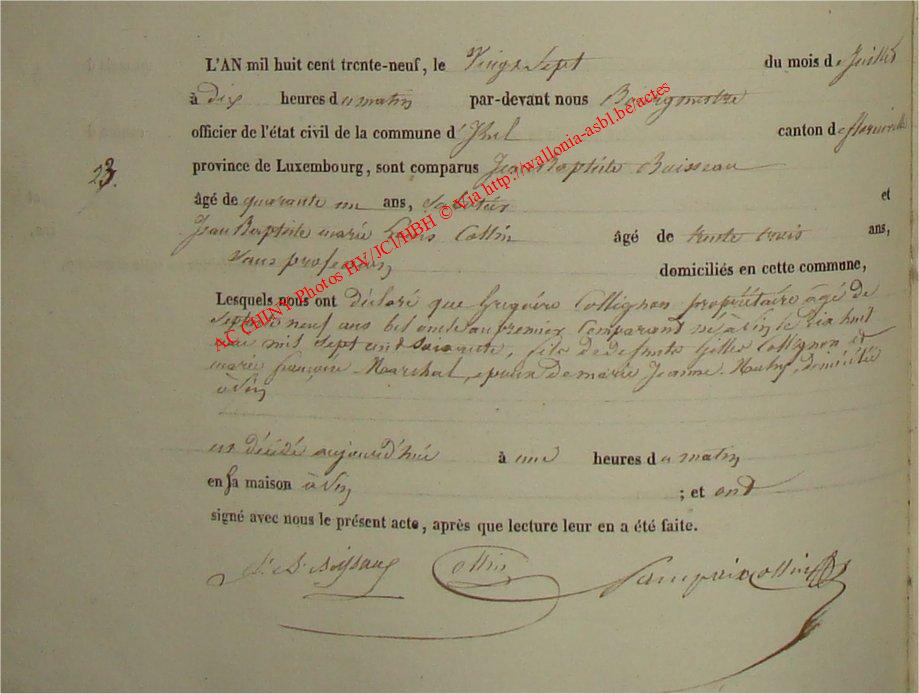 L'AN mil huit cent trente-neuf, le Vingt Sept du mois de Juillet
à dix heures du matin par-devant nous Bourgmestre
officier de l'état civil de la commune d' canton de florenville
23.
province de Luxembourg, sont comparus Jean Baptiste Buisseau
âgé de quarante un ans, et
Jean Baptiste marie Collin âgé de trente trois ans,
professeur domiciliés en cette commune,
Lesquels nous ont déclaré que Gregoire Collignon propriétaire âgé de
septante neuf ans bel oncle au premier Comparant né à le dix huit
mil sept cent Soixante, fils de defunts Gilles Collignon et
marie françoise Marchal, epoux de marie Jeanne domiciliée
à
est décédé aujourd'hui à une heures du matin
en sa maison à ; et ont
signé avec nous le présent acte, après que lecture leur en a été faite.
Collin
AC CHINY Photos HY/JCI/HBH © Via http://wallonia-asbl.be/actes